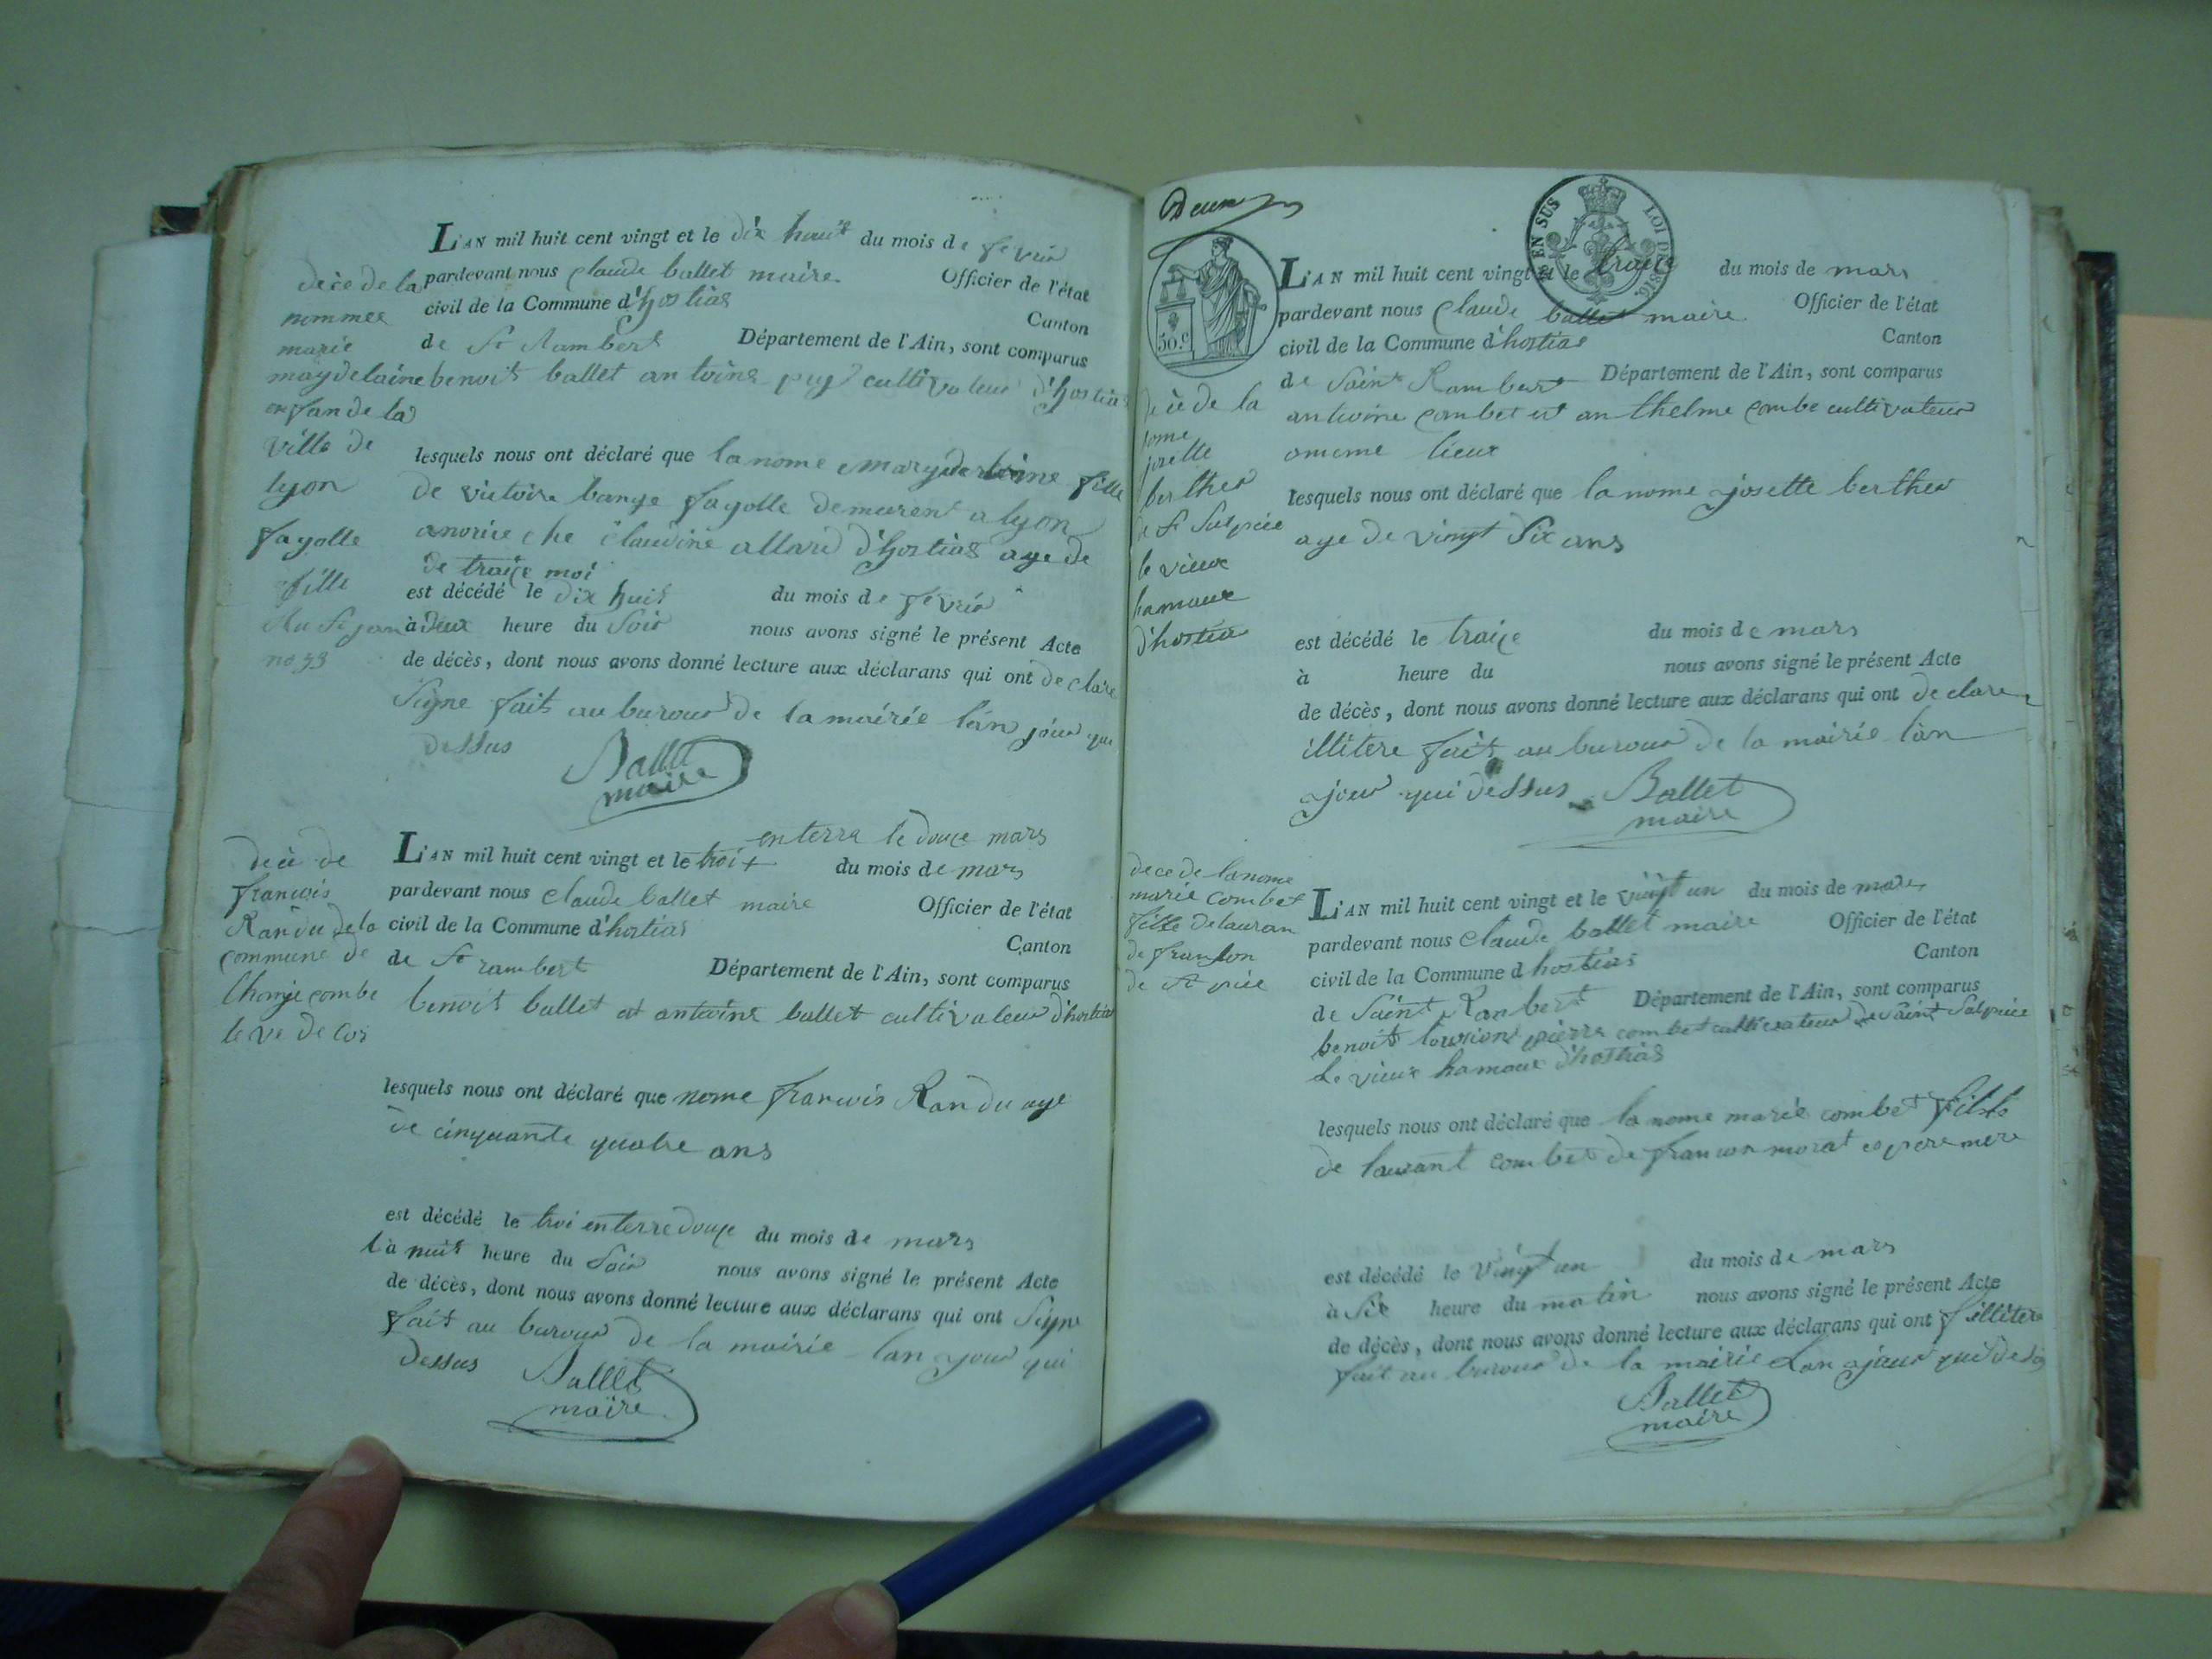 L'AN mil huit cent vingt et le dix huit du mois de fevrié
pardevant nous claude ballet maire Officier de l'état
civil de la Commune d'hostias Canton
de St Rambert Département de l'Ain, sont comparus
benoit ballet antoine puy cultivateur d'hostias
lesquels nous ont déclaré que la nome fille
de victoire fayolle demurent a lyon
anorice che claudine allard d'hostias age de
de traize moi
est décédé le dix huit du mois de fevrié
à deux heure du Soir nous avons signé le présent Acte
de décès, dont nous avons donné lecture aux déclarans qui ont declare
Signe fait au burour de la mairie l'an jour que
dessus Ballet
maire
dece de la
nommee
marie
maydelaine
enfan de la
ville de
lyon
fayolle
fille
no
enterra le douze mars
L'AN mil huit cent vingt et le troi du mois de mars
pardevant nous claude ballet maire Officier de l'état
civil de la Commune d'hostias Canton
de St rambert Département de l'Ain, sont comparus
benoit ballet et antoine ballet cultivateur d'hostias
lesquels nous ont déclaré que nome francois Randu age
de cinquante quatre ans
est décédé le troi enterre douze du mois de mars
à nuit heure du Soir nous avons signé le présent Acte
de décès, dont nous avons donné lecture aux déclarans qui ont Signe
fait au burour de la mairie lan jour qui
dessus Ballet
maire
decè de
francois
Randu de la
commune de
combe
Deux
EN SUS LOI DE 1816.
50.c
L'AN mil huit cent vingt et le traize du mois de mars
pardevant nous claude ballet maire Officier de l'état
civil de la Commune d'hostias Canton
de Saint Rambert Département de l'Ain, sont comparus
antoine combet et anthelme combe cultivateur
omeme lieux
lesquels nous ont déclaré que la nome josette berthet
age de vingt Six ans
est décédé le traize du mois de mars
à heure du nous avons signé le présent Acte
de décès, dont nous avons donné lecture aux déclarans qui ont declare
illitere fait au burour de la mairie l'an
jour qui dessus Ballet
maire
decè de la
nome
josette
berthet
de St Sulpice
le vieux
hamaux
d'hostias
L'AN mil huit cent vingt et le vingt un du mois de mars
pardevant nous claude ballet maire Officier de l'état
civil de la Commune d hostias Canton
de Saint Rambert Département de l'Ain, sont comparus
benoit pierre combet cultivateur de Saint Sulpice
le vieux hamaux d'hostias
lesquels nous ont déclaré que la nome marie combet fille
de laurant combet de francon morat pere mere
est décédé le vingt un du mois de mars
à Six heure du matin nous avons signé le présent Acte
de décès, dont nous avons donné lecture aux déclarans qui ont illitere
fait au burour de la mairie Lan jour
Ballet
maire
dece de lanome
marie combet
fille de lauran
de
de St